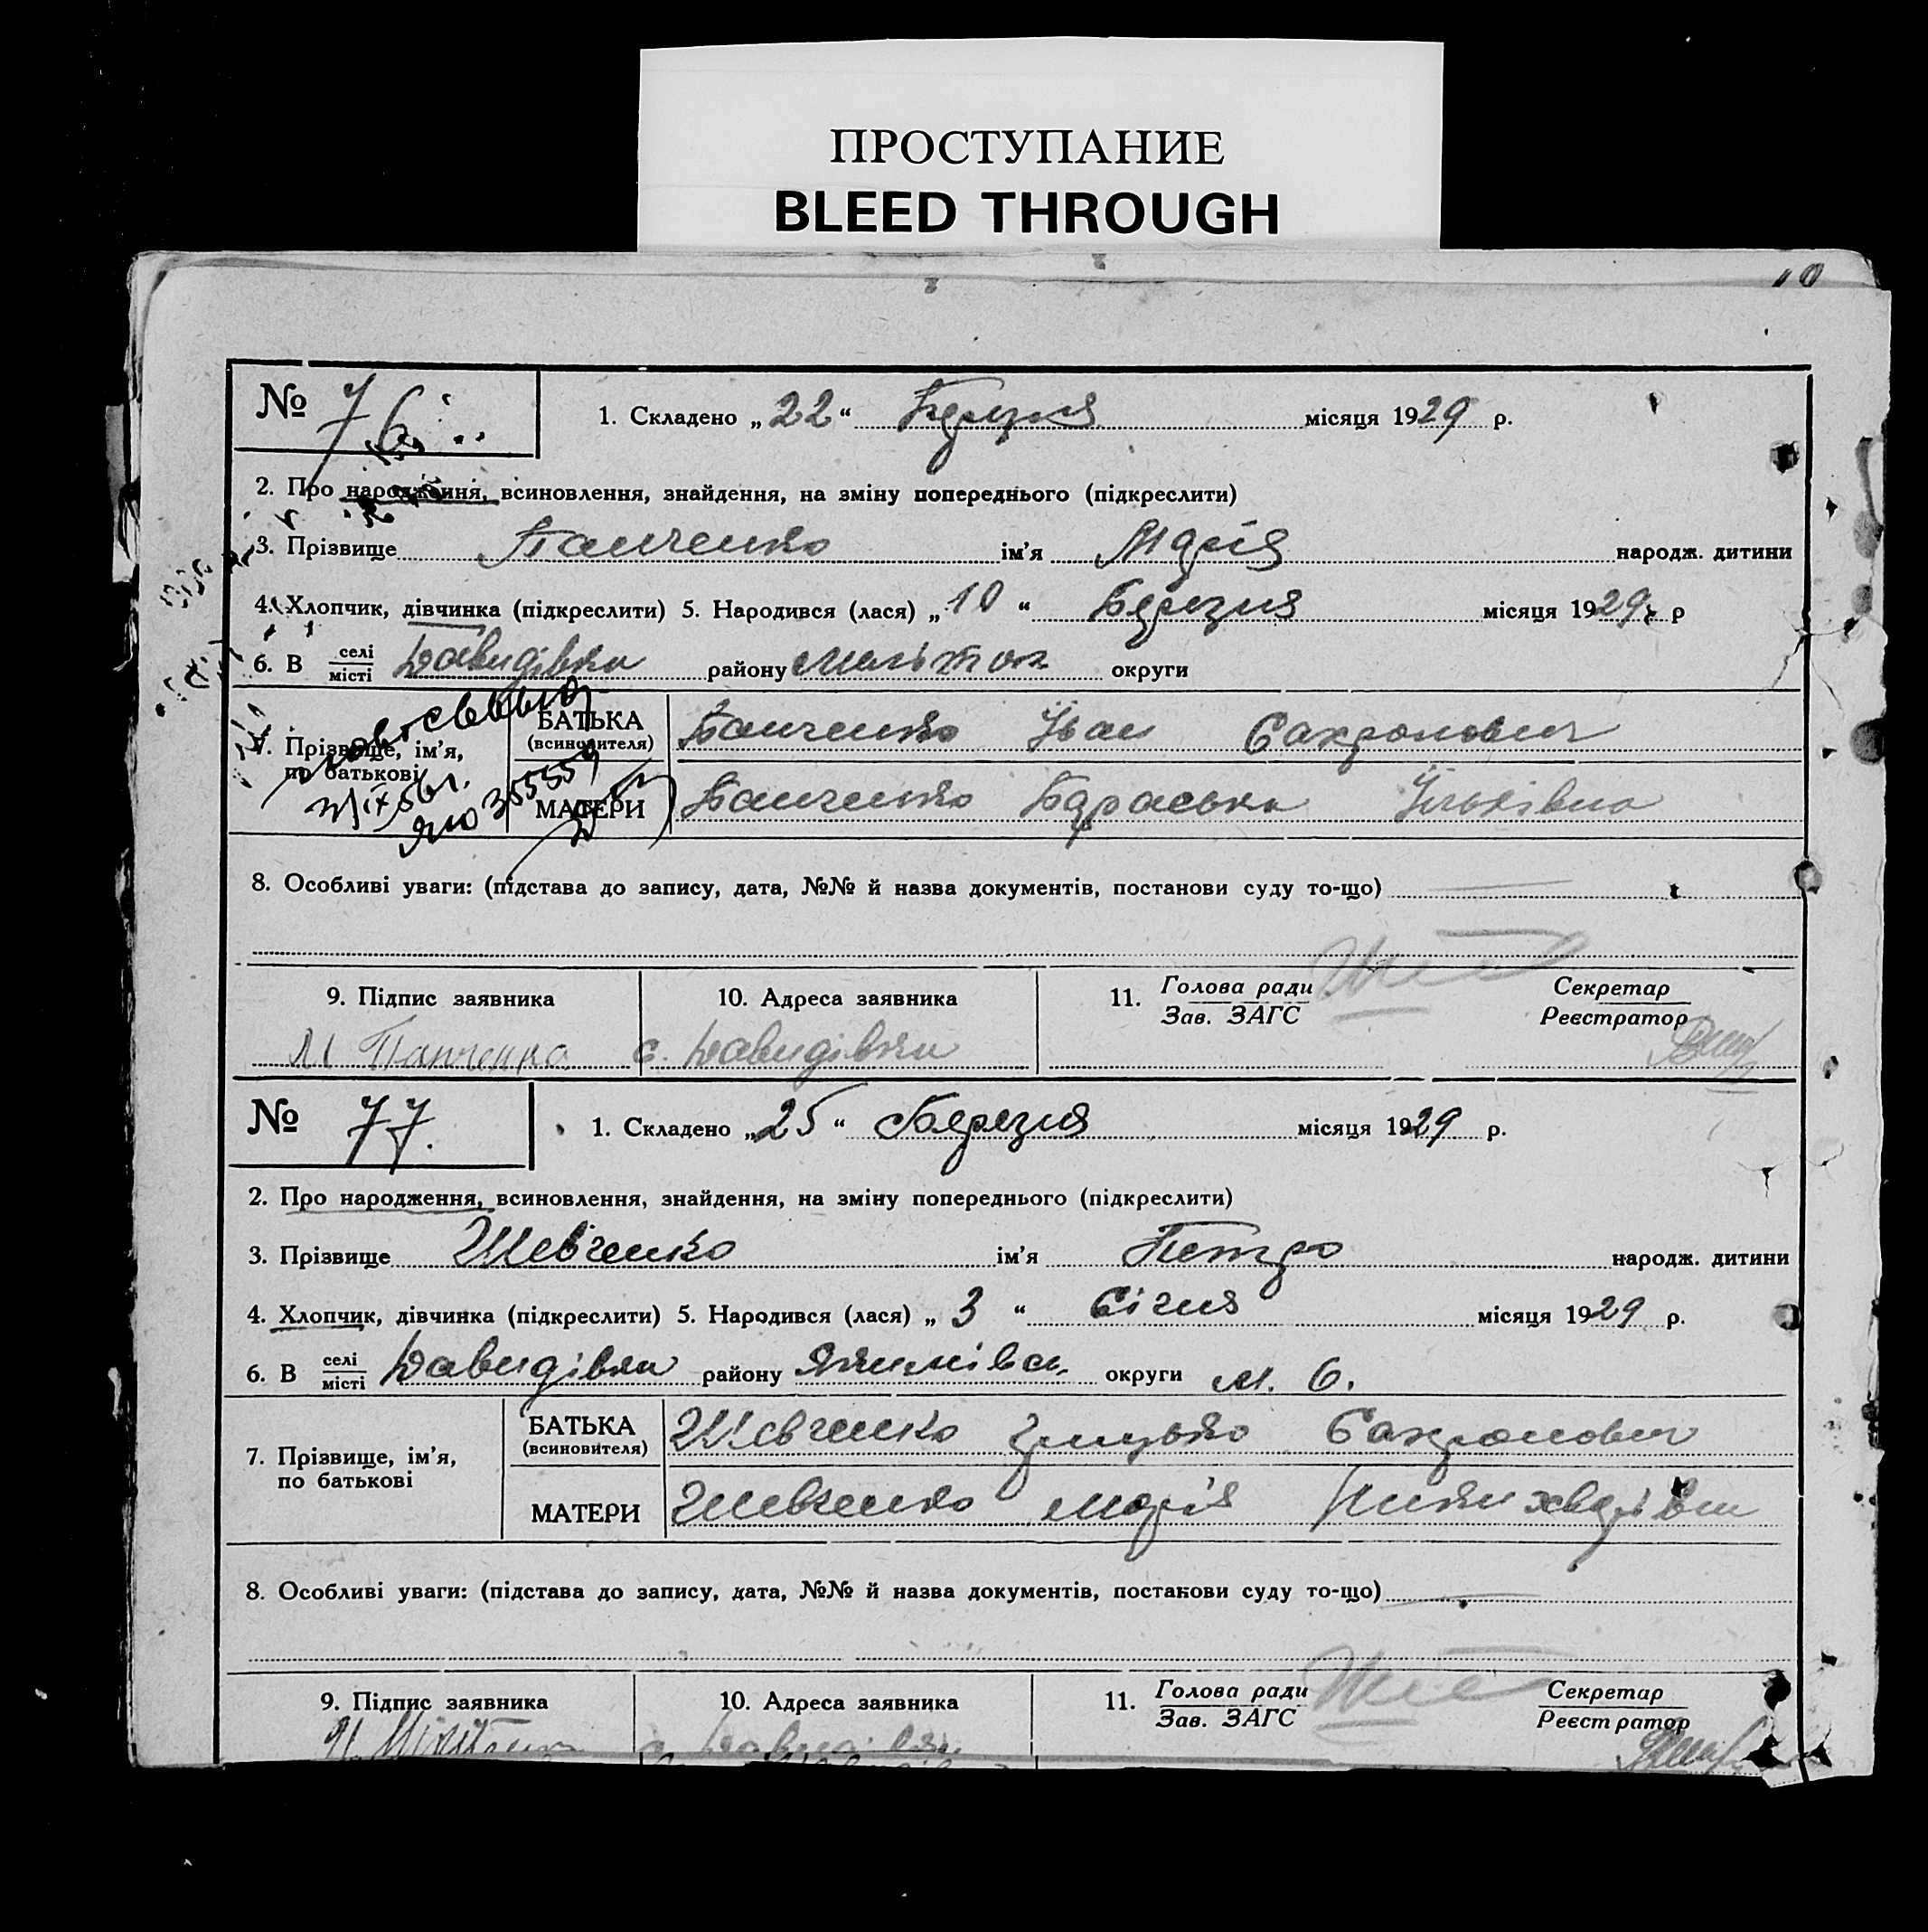 ПРОСТУПАНИЕ
BLEED THROUGH
№ 76
1. Складено „22“ Березня місяця 1929 р.
2. Про народження, всиновлення, знайдення, на зміну попереднього (підкреслити)
3. Прізвище Панченко ім’я Марія народж. дитини
4. Хлопчик, дівчинка (підкреслити) 5. Народився (лася) „10“ Березня місяця 1929 р
6. В селі місті Давидівки району Мелітоп округи
7. Прізвище, ім’я, по батькові
БАТЬКА (всиновителя) Панченко Іван Сахронович
МАТЕРИ Панченко Параська Ільківна
8. Особливі уваги: (підстава до запису, дата, №№ й назва документів, постанови суду то-що)
9. Підпис заявника 10. Адреса заявника 11. Голова ради Зав. ЗАГС Секретар Реєстратор
М Панченко с. Давидівки
№ 77.
1. Складено „25“ Березня місяця 1929 р.
2. Про народження, всиновлення, знайдення, на зміну попереднього (підкреслити)
3. Прізвище Шевченко ім’я Петро народж. дитини
4. Хлопчик, дівчинка (підкреслити) 5. Народився (лася) „3“ Січня місяця 1929 р.
6. В селі місті Давидівки району Якимівськ. округи М. О.
7. Прізвище, ім’я, по батькові
БАТЬКА (всиновителя) Шевченко Грицько Сахронович
МАТЕРИ Шевченко Марія
8. Особливі уваги: (підстава до запису, дата, №№ й назва документів, постанови суду то-що)
9. Підпис заявника 10. Адреса заявника 11. Голова ради Зав. ЗАГС Секретар Реєстратор